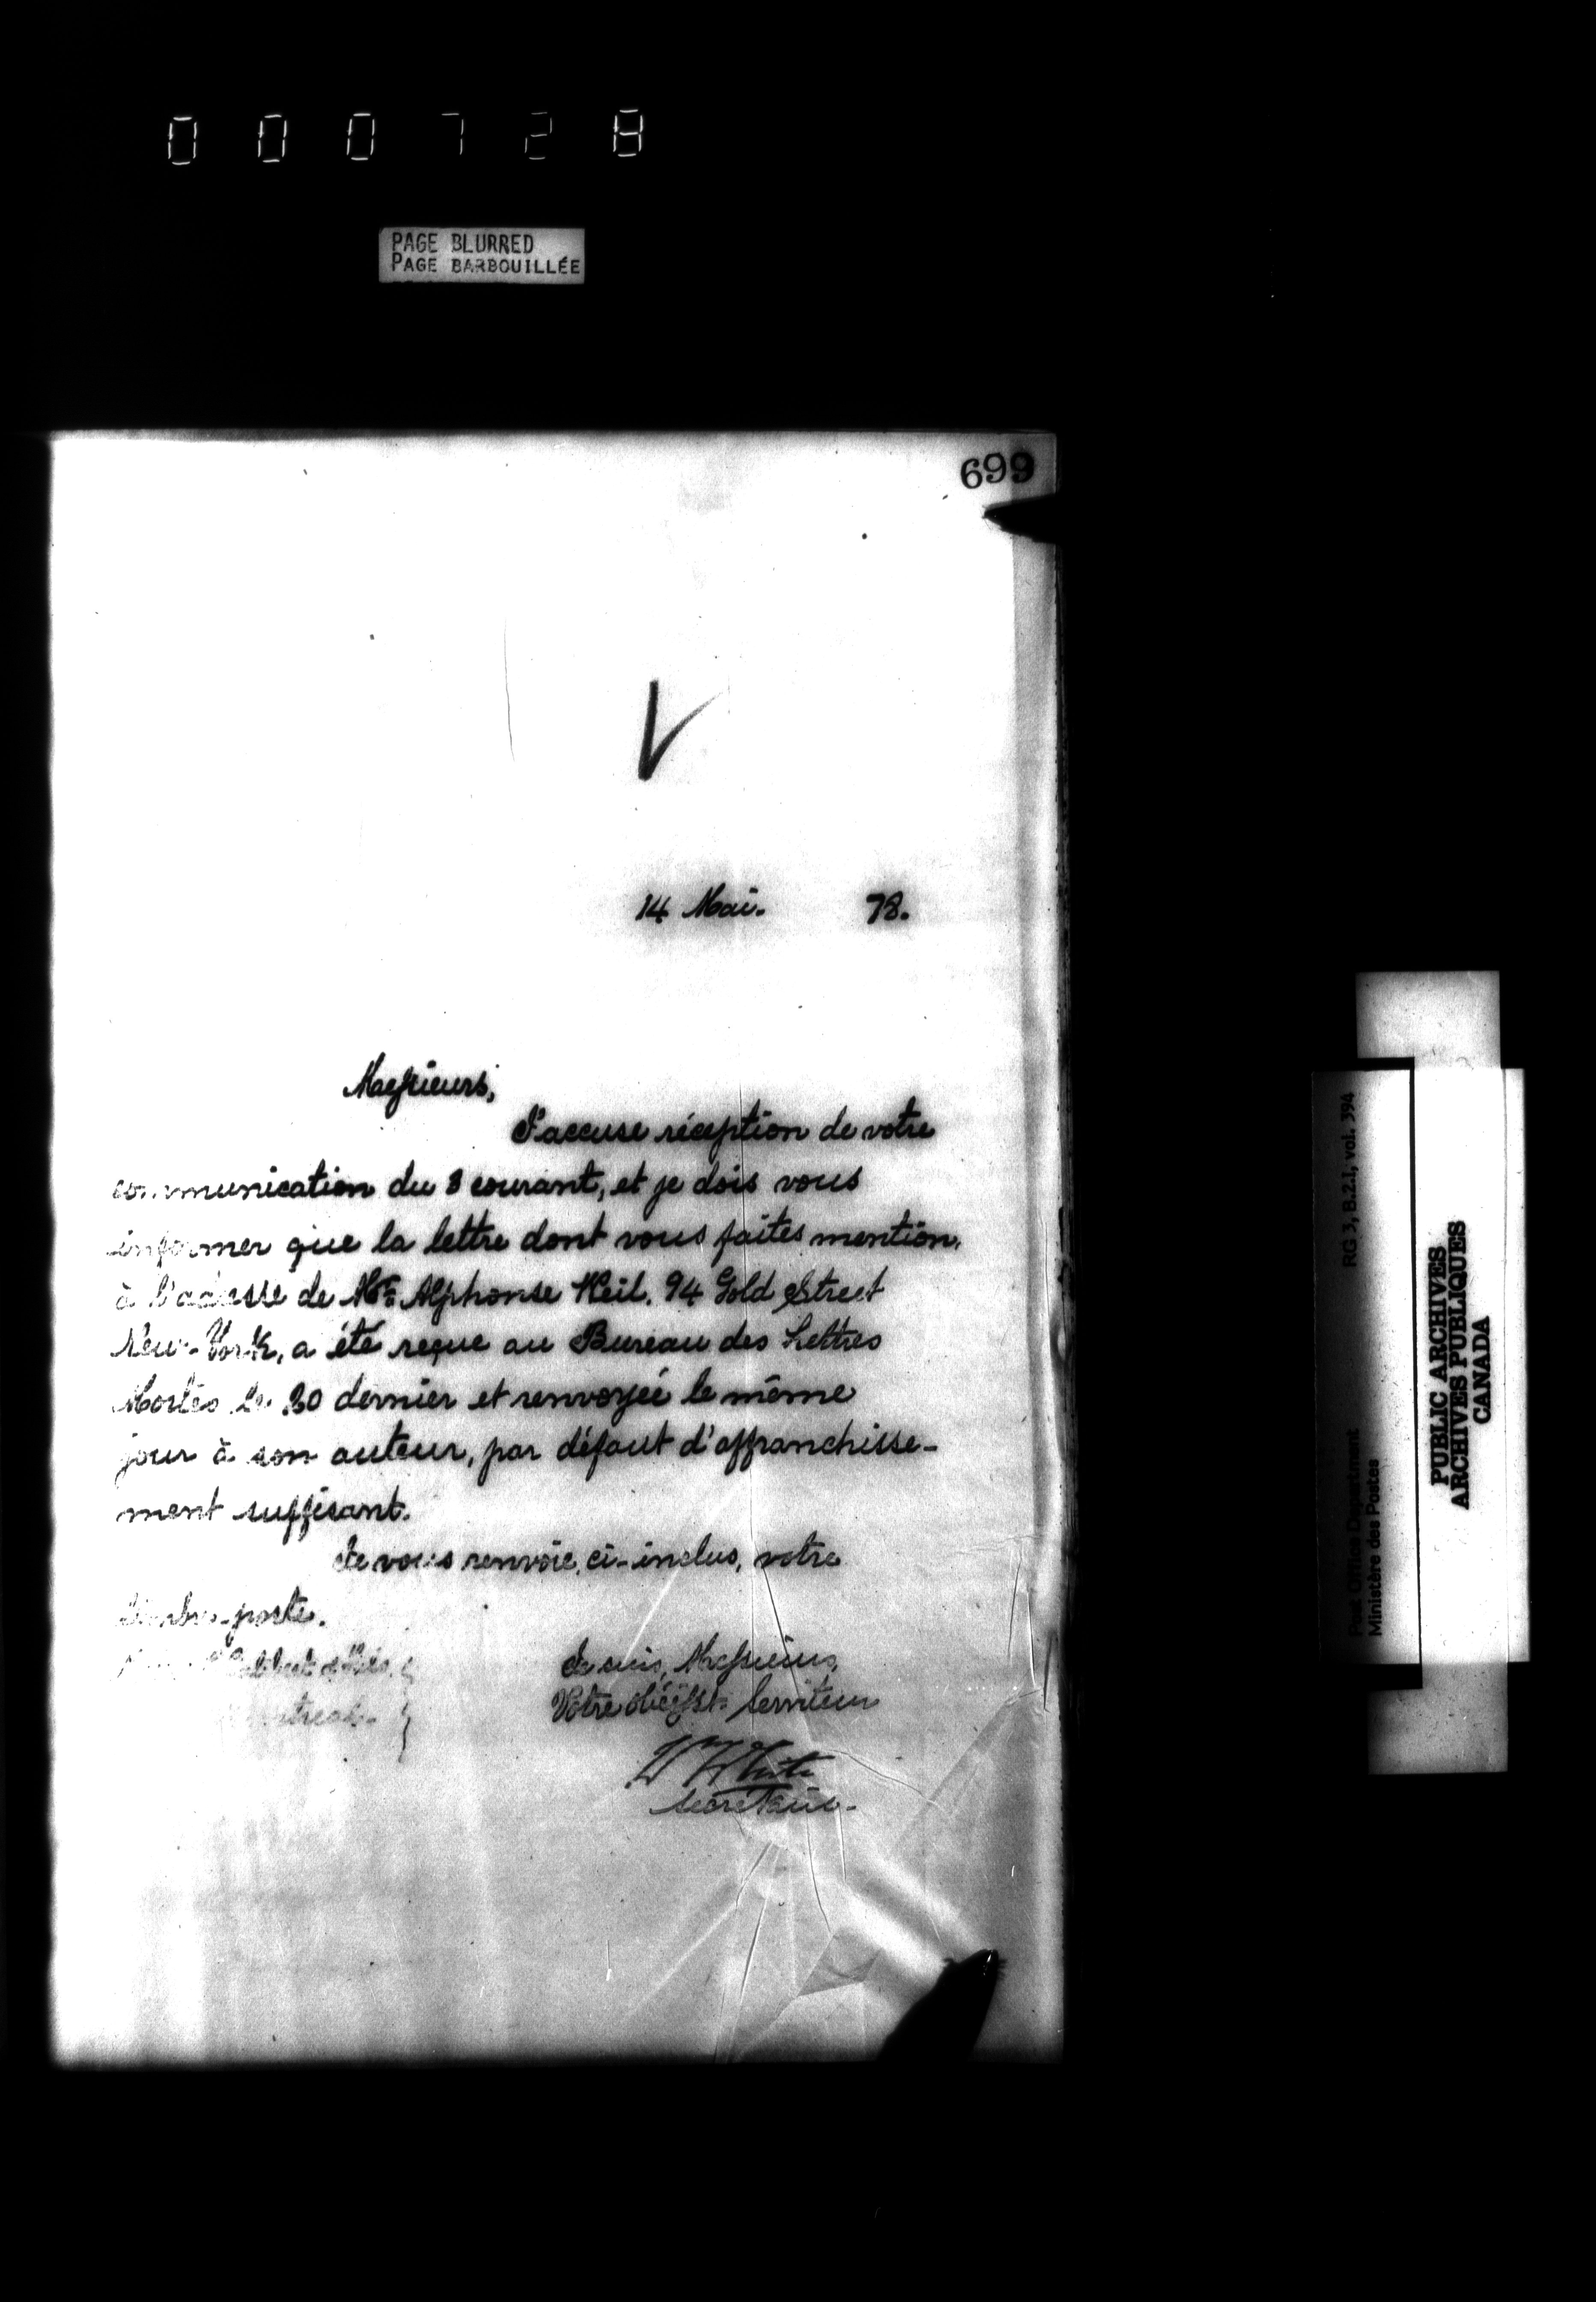 000728
PAGE BLURRED
PAGE BARBOUILLÉE
699
14 Mai. 78.
Messieurs,
J'accuse réception de votre
communication du 8 courant, et je dois vous
informer que la lettre dont vous faites mention,
à l'adresse de Mr. Alphonse Weil. 94 Gold Street
New-York, a été reçue au Bureau des Lettres
Mortes le 30 dernier et renvoyée le même
jour à son auteur, par défaut d'affranchisse-
ment suffisant.
Je vous renvoie, ci-inclus, votre
timbre-poste.
Je suis, Messieurs,
Votre obéisst. Serviteur
W White
Secrétaire.
Montreal.
RG 3, B.2.1, vol. 394
Post Office Department
Ministère des Postes
PUBLIC ARCHIVES
ARCHIVES PUBLIQUES
CANADA